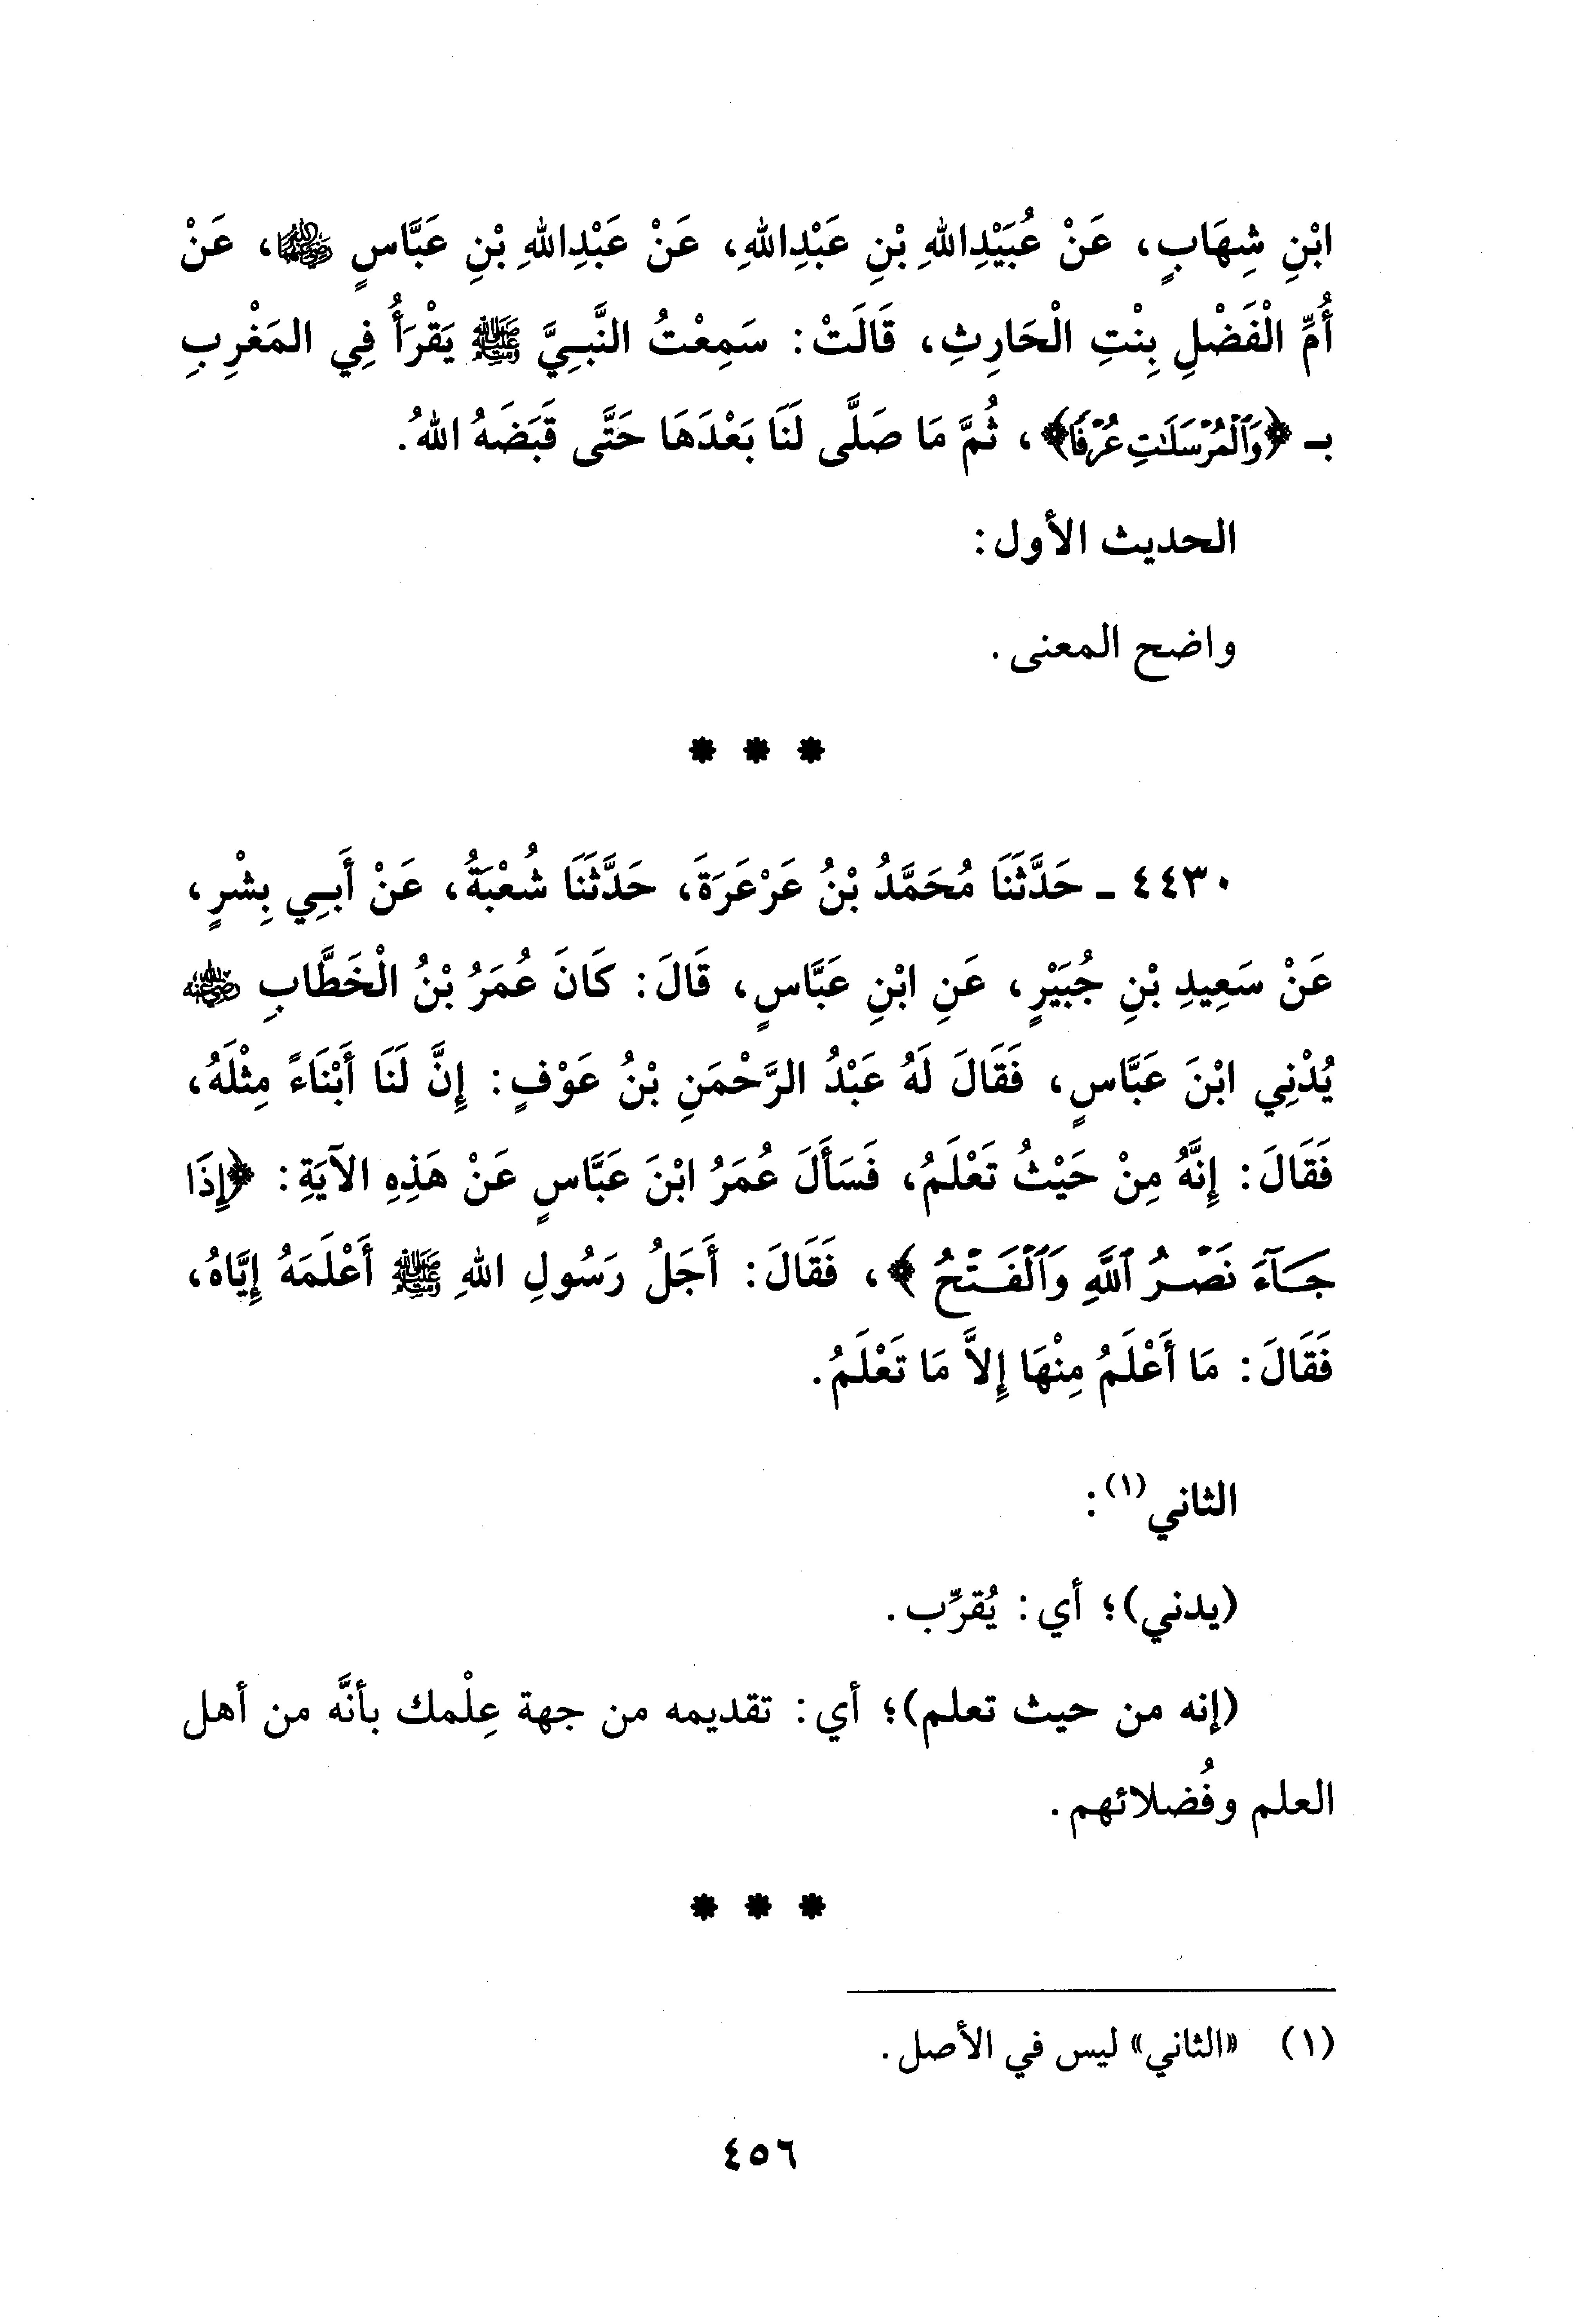 ابْنِ شِهَابٍ، عَنْ عُبَيْدِاللهِ بْنِ عَبْدِاللهِ، عَنْ عَبْدِاللهِ بْنِ عَبَّاسٍ رضي الله عنهما، عَنْ
أُمِّ الْفَضْلِ بِنْتِ الْحَارِثِ، قَالَتْ: سَمِعْتُ النَّبِيَّ ﷺ يَقْرَأُ فِي المَغْرِبِ
بـ ﴿وَٱلْمُرْسَلَٰتِ عُرْفًا﴾، ثُمَّ مَا صَلَّى لَنَا بَعْدَهَا حَتَّى قَبَضَهُ اللهُ.
الحديث الأول:
واضح المعنى.
* * *
٤٤٣٠ ـ حَدَّثَنَا مُحَمَّدُ بْنُ عَرْعَرَةَ، حَدَّثَنَا شُعْبَةُ، عَنْ أَبِي بِشْرٍ،
عَنْ سَعِيدِ بْنِ جُبَيْرٍ، عَنِ ابْنِ عَبَّاسٍ، قَالَ: كَانَ عُمَرُ بْنُ الْخَطَّابِ رضي الله عنه
يُدْنِي ابْنَ عَبَّاسٍ، فَقَالَ لَهُ عَبْدُ الرَّحْمَنِ بْنُ عَوْفٍ: إِنَّ لَنَا أَبْنَاءً مِثْلَهُ،
فَقَالَ: إِنَّهُ مِنْ حَيْثُ تَعْلَمُ، فَسَأَلَ عُمَرُ ابْنَ عَبَّاسٍ عَنْ هَذِهِ الآيَةِ: ﴿إِذَا
جَآءَ نَصْرُ ٱللَّهِ وَٱلْفَتْحُ﴾، فَقَالَ: أَجَلُ رَسُولِ اللهِ ﷺ أَعْلَمَهُ إِيَّاهُ،
فَقَالَ: مَا أَعْلَمُ مِنْهَا إِلاَّ مَا تَعْلَمُ.
الثاني(١):
(يدني)؛ أي: يُقرِّب.
(إنه من حيث تعلم)؛ أي: تقديمه من جهة عِلْمك بأنَّه من أهل
العلم وفُضلائهم.
* * *
(١) «الثاني» ليس في الأصل.
٤٥٦